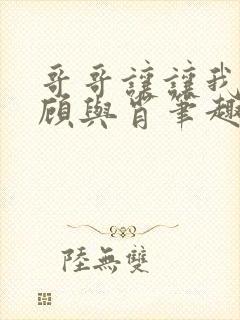 哥哥讓讓我
顧與肖筆趣
陸無雙